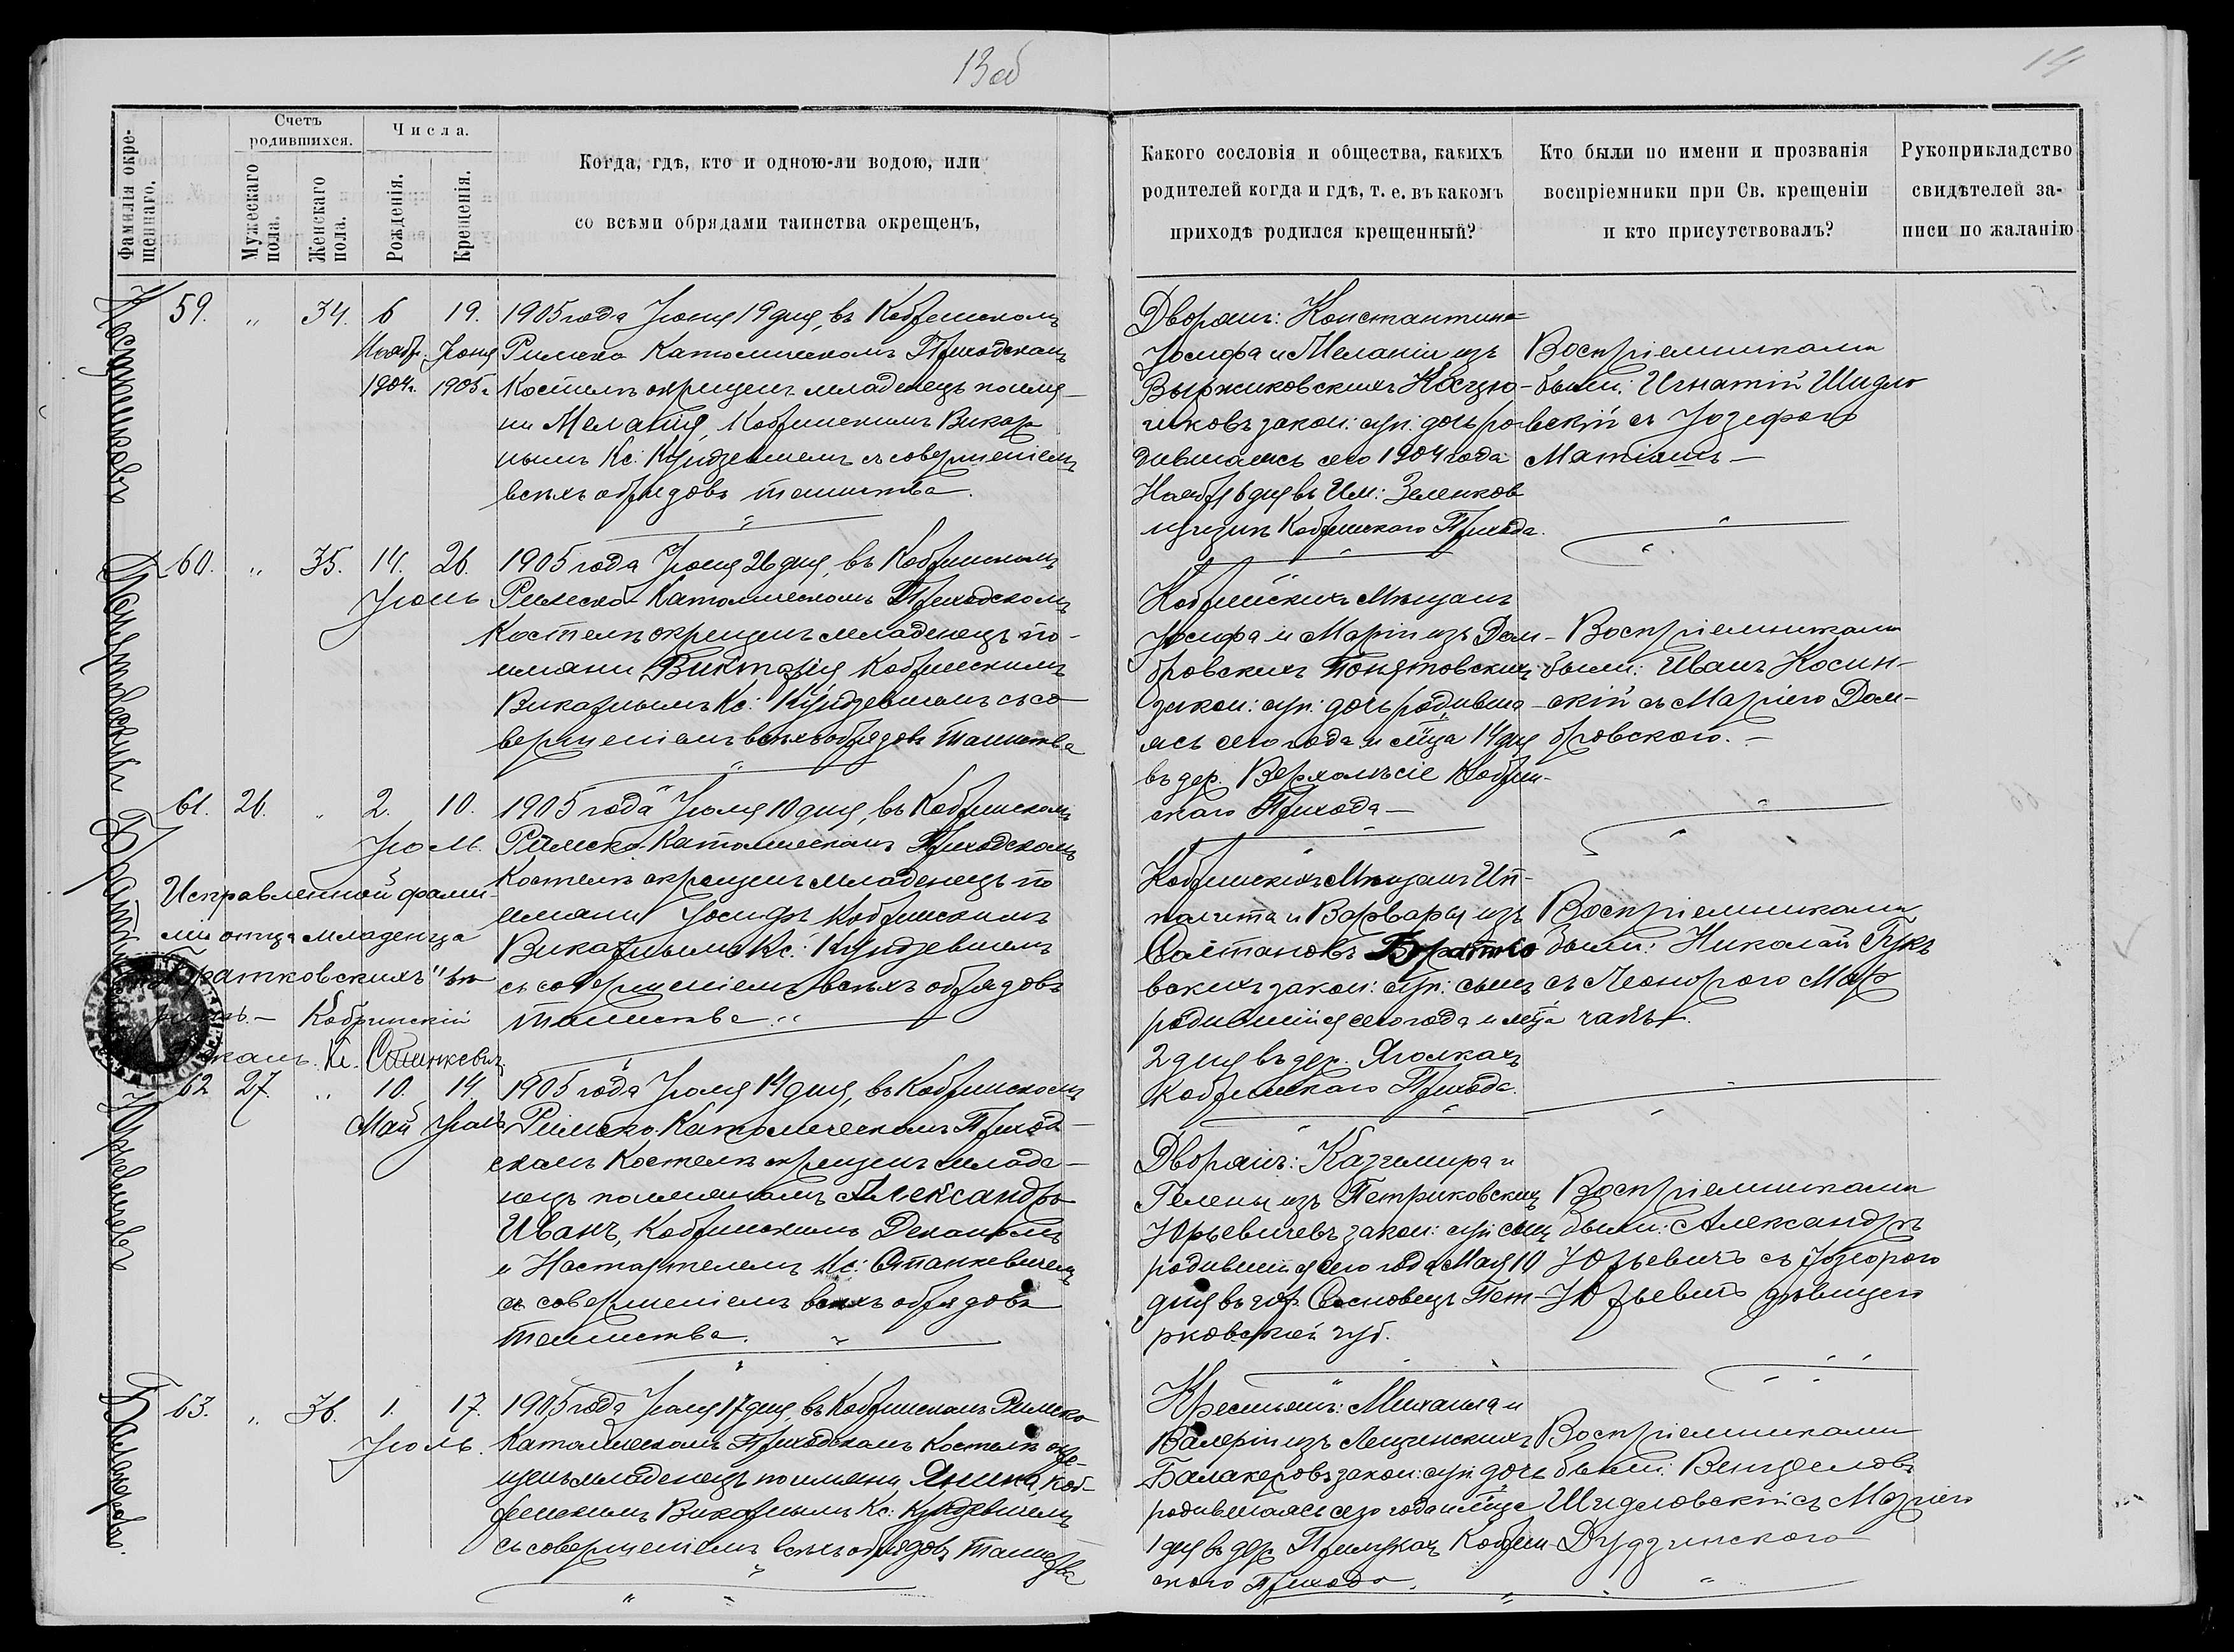 13об
14
Фамилія окре-
щеннаго.
Счетъ
родившихся.
Мужескаго
пола.
Женскаго
пола.
Числа.
Рожденія.
Крещенія.
Когда, гдѣ, кто и одною-ли водою, или
со всѣми обрядами таинства окрещенъ,
Какого сословія и общества, какихъ
родителей когда и гдѣ, т. е. въ какомъ
приходѣ родился крещенный?
Кто были по имени и прозванія
воспріемники при Св. крещеніи
и кто присутствовалъ?
Рукоприкладство
свидѣтелей за-
писи по жаланію
59. " 34. 6 19.
Ноябр. Іюня
1904г. 1905г.
1905 года Іюня 19 дня, въ Кобринскомъ
Римско Католическомъ Приходскомъ
Костелѣ окрещенъ младенецъ по имя-
ни Меланія, Кобринскимъ Викар
нымъ Кс: съ совершеніемъ
всѣхъ обрядовъ таинства.
Дворянъ: Константина-
Іосифа и Меланіи изъ
Выржиковскихъ Косцю-
шковъ закон: супр: дочь ро-
дившаясь сего 1904 года
Ноября 6 дня въ Им: Зеленков
Кобринскаго Прихода.
Воспріемниками
были: Игнатій Шидло
вскій съ Іозефою
Матіашъ —
Понятовскихъ
60. " 35. 14. 26.
Іюнь
1905 года Іюня 26 дня, въ Кобринскомъ
Римско-Католическомъ Приходскомъ
Костелѣ окрещенъ младенецъ по-
имяни Викторія Кобринскимъ
Викарнымъ Кс: съ со-
вершеніемъ всѣхъ обрядовъ таинства
Кобринскихъ Мѣщанъ
Іосифа и Маріи изъ Дом-
бровскихъ Понятовскихъ
закон: супр: дочь родивша-
ясь сего года и м-ца 14 дня
въ дер. Верхолѣсіе Кобрин-
скаго Прихода —
Воспріемниками
были: Иванъ Косин-
скій съ Маріею Дом-
бровскою. —
61. 26. " 2. 10.
Іюль.
Исправленной фами-
ліи отца младенца
"Братковскихъ" вѣ
рно. — Кобринскій
Деканъ Кс. Станкевичъ
1905 года Іюля 10 дня, въ Кобринскомъ
Римско-Католическомъ Приходскомъ
Костелѣ окрещенъ младенецъ по
имяни Іосифъ Кобринскимъ
Викарнымъ Кс:
съ совершеніемъ всѣхъ обрядовъ
таинства.
Кобринскихъ Мѣщанъ Ип-
полита и Варвары изъ
Солтановъ Братко
вскихъ закон: супр: сынъ
родившійся сего года и м-ца
2 дня въ дер. Яголкахъ
Кобринскаго Прихода.
Воспріемниками
были: Николай Гукъ
съ Леонорою Мар
чакъ.
Юрьевичевъ
62 27. " 10. 14.
Май Іюль
1905 года Іюля 14 дня, въ Кобринскомъ
Римско-Католическомъ Приход-
скомъ Костелѣ окрещенъ младе-
нецъ по имянамъ Александръ
Иванъ, Кобринскимъ Деканомъ
и Настоятелемъ Кс: Станкевичемъ
съ совершеніемъ всѣхъ обрядовъ
таинства.
Дворянъ: Казимира и
Гелены изъ Петриковскихъ
Юрьевичевъ закон: супр: сынъ
родившійся сего года Мая 10
дня въ гор. Сосновецъ Пет-
рковской губ.
Воспріемниками
были: Александръ
Юрьевичъ съ
Юрьевичъ дѣвицею
63. " 36. 1. 17.
Іюль.
1905 года Іюля 17 дня, въ Кобринскомъ Римско
Католическомъ Приходскомъ Костелѣ окре-
щенъ младенецъ по имяни Янина, Коб-
ринскимъ Викарнымъ Кс:
съ совершеніемъ всѣхъ обрядовъ таинства
Крестьянъ: Михаила и
Валеріи изъ Лещинскихъ
Балакеровъ закон: супр: дочь
родившаясь сего года и м-ца
1 дня въ дер. Кобрин-
скаго Прихода.
Воспріемниками
были: Венцеславъ
Шидловскій съ Маріею